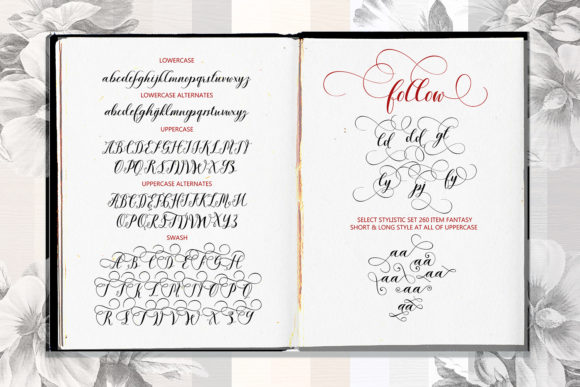 LOWERCASE
abcdefghijklmnopqrstuvwxyz
LOWERCASE ALTERNATES
abcdefghijklmnopqrstuvwxyz
UPPERCASE
ABCDEFGHIJKLMN
OPQRSTUVWXYZ
UPPERCASE ALTERNATES
ABCDEFGHIJKLMN
OPQRSTUVWXYZ
SWASH
A B C D E F G H
I J K L M N O P Q
R S T U V W X Y Z
follow
ld dd gt
ly pj fy
SELECT STYLISTIC SET 260 ITEM FANTASY
SHORT & LONG STYLE AT ALL OF UPPERCASE
aa
aa
aa aa
aa aa
aa